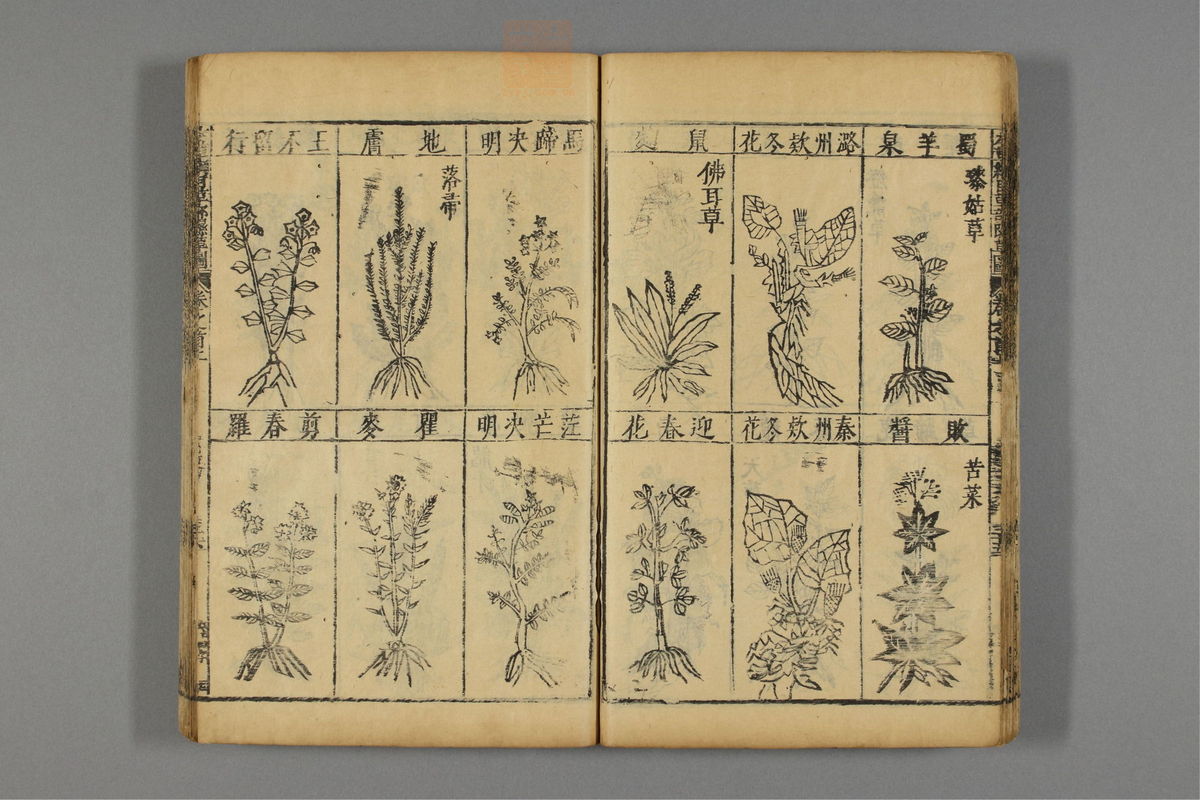 蜀羊泉
漆姑草
潞州欵冬花
鼠麴
佛耳草
敗醬
苦菜
秦州欵冬花
迎春花
馬蹄決明
地膚
落帚
王不留行
茳芒决明
瞿麥
剪春羅